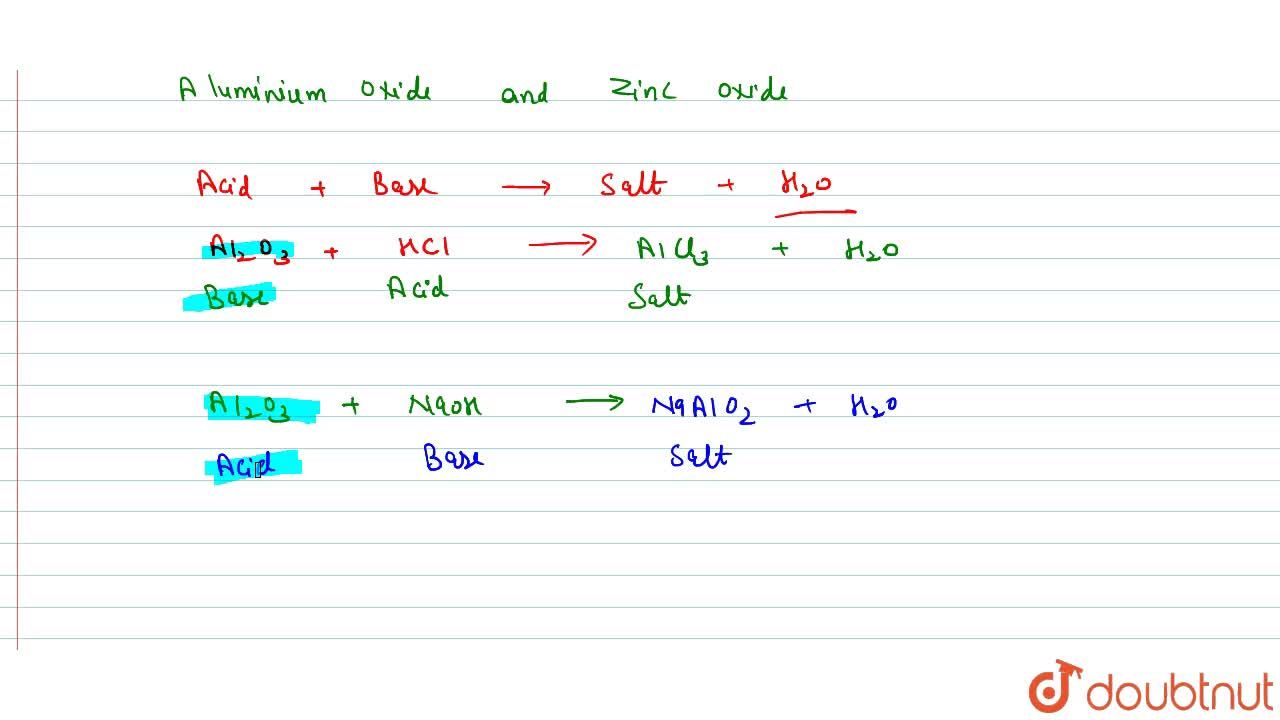 Aluminium Oxide and Zinc oxide
Acid + Base → Salt + H₂O
Al₂O₃ + HCl → AlCl₃ + H₂O
Base Acid Salt
Al₂O₃ + NaOH → NaAlO₂ + H₂O
Acid Base Salt
doubtnut